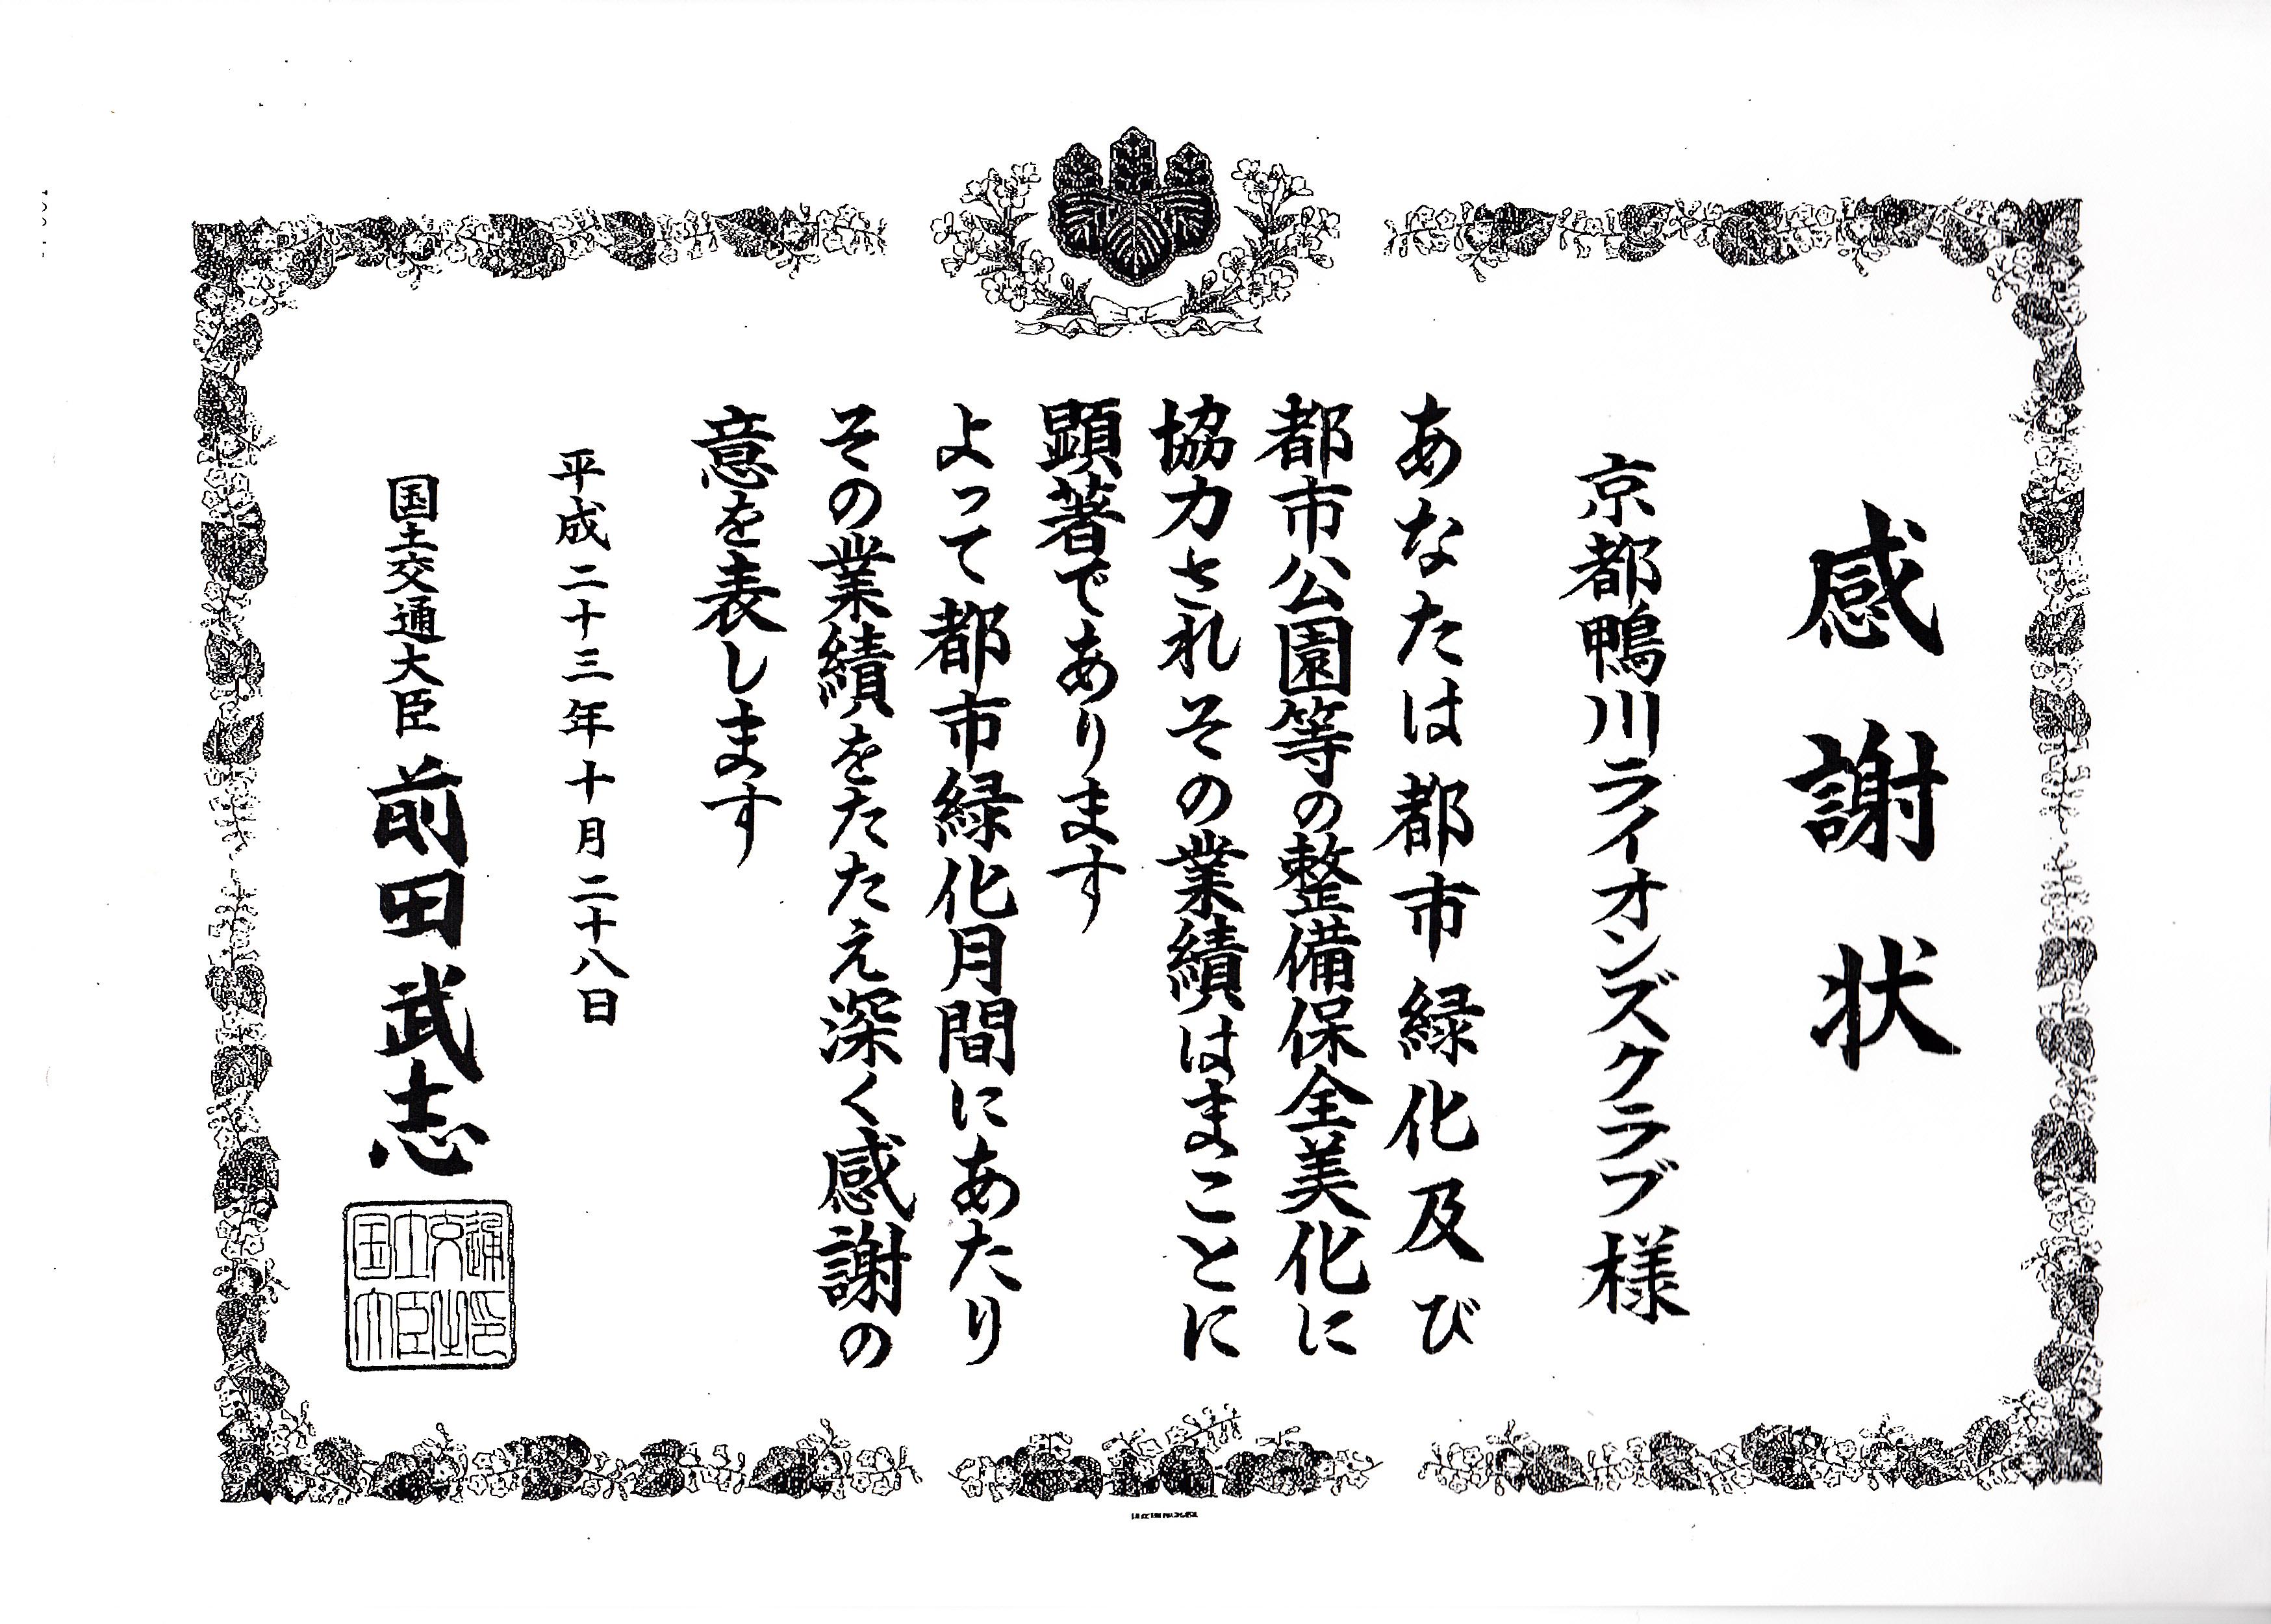 感謝状
京都鴨川ライオンズクラブ様
あなたは都市緑化及び
都市公園等の整備保全美化に
協力されその業績はまことに
顕著であります
よって都市緑化月間にあたり
その業績をたたえ深く感謝の
意を表します
平成二十三年十月二十八日
国土交通大臣 前田武志
国土交通
大臣之印